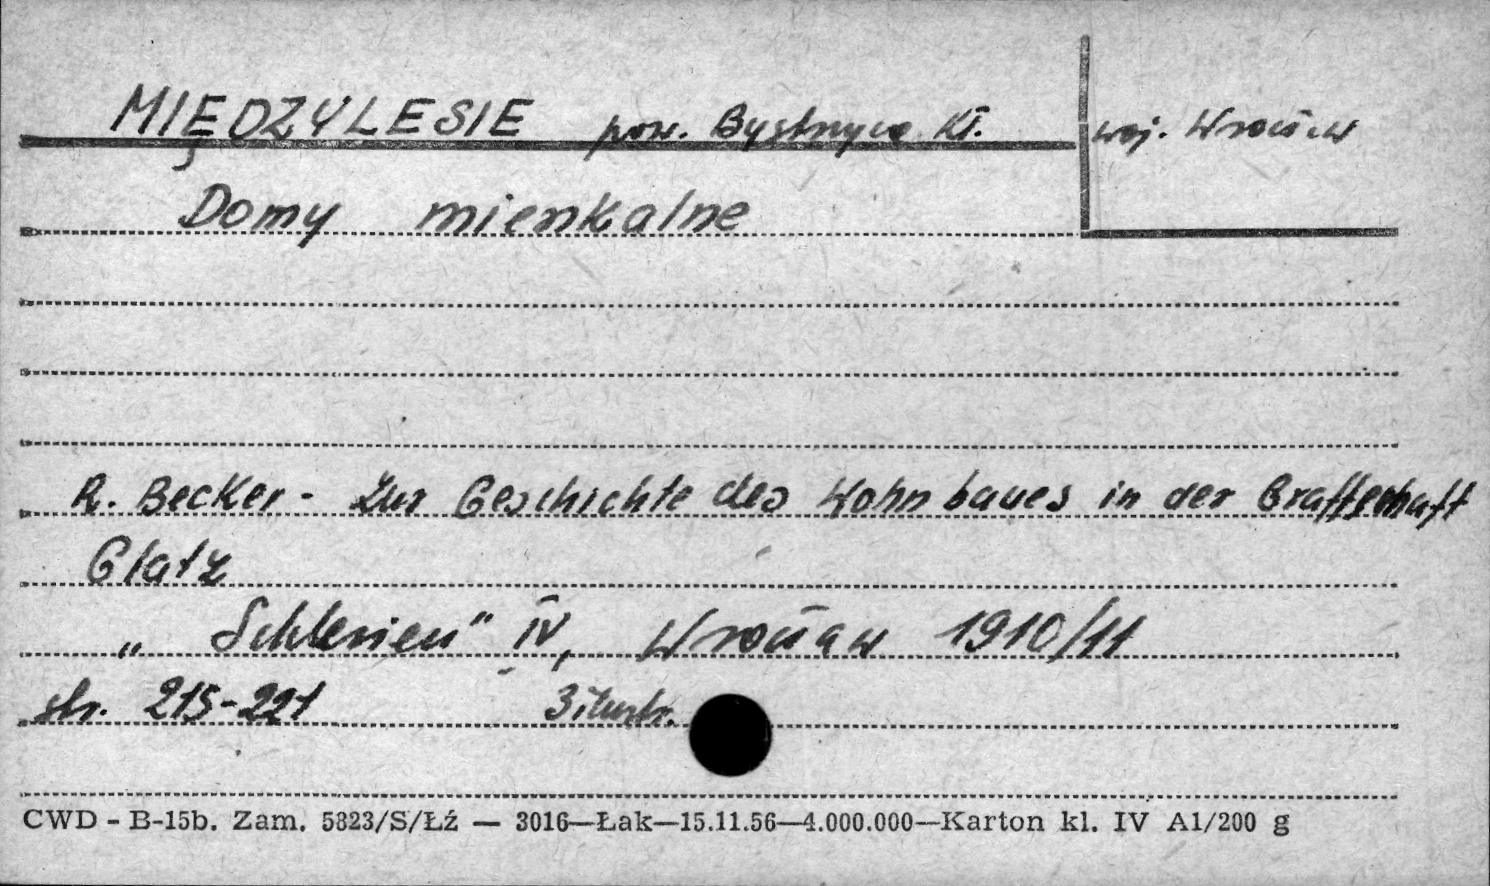 MIĘDZYLESIE pow. Bystrzyca Kł. woj. Wrocław
Domy mieszkalne
R. Becker - Zur Geschichte des Wohnbaues in der Graffschaft
Glatz
„Schlesien" IV, Wrocław 1910/11
str. 215-221 3 ilustr.
CWD - B-15b. Zam. 5823/S/Łź — 3016—Łak—15.11.56—4.000.000—Karton kl. IV A1/200 g